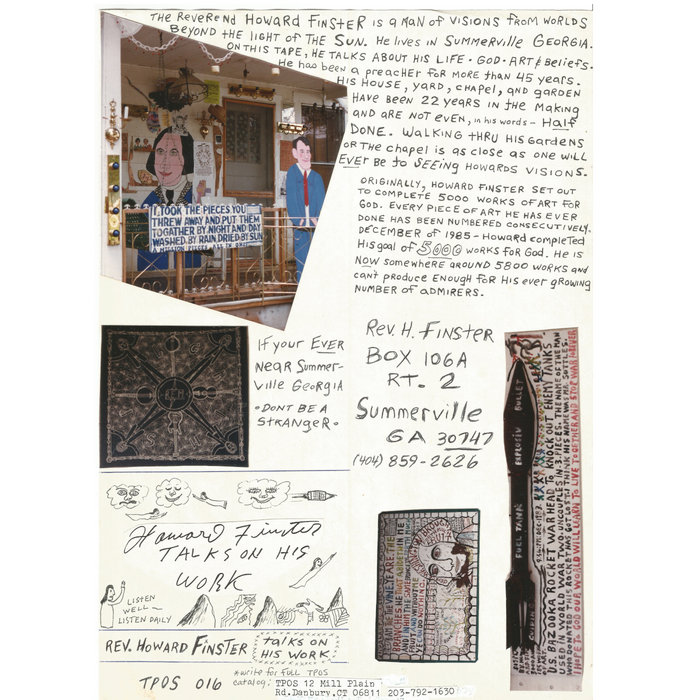 THE REVEREND HOWARD FINSTER is A MAN OF VISIONS FROM WORLDS
BEYOND THE LIGHT OF THE SUN. HE LIVES IN SUMMERVILLE GEORGIA.
ON THIS TAPE, HE TALKS ABOUT HIS LIFE · GOD · ART & BELIEFS.
He has been a preacher for more than 45 years.
HIS HOUSE, YARD, CHAPEL, AND GARDEN
HAVE BEEN 22 YEARS IN THE MAKING
AND ARE NOT EVEN, in his words - HALF
DONE. WALKING THRU HIS GARDENS
OR THE CHAPEL IS AS CLOSE AS ONE WILL
EVER BE TO SEEING HOWARDS VISIONS.
ORIGINALLY, HOWARD FINSTER SET OUT
TO COMPLETE 5000 WORKS OF ART FOR
GOD. EVERY PIECE OF ART HE HAS EVER
DONE HAS BEEN NUMBERED CONSECUTIVELY.
DECEMBER OF 1985 - HOWARD COMPLETED
HIS GOAL OF 5000 WORKS FOR GOD. HE IS
NOW SOMEWHERE AROUND 5800 WORKS AND
CAN'T PRODUCE ENOUGH FOR HIS EVER GROWING
NUMBER OF ADMIRERS.
I TOOK THE PIECES YOU
THREW AWAY AND PUT THEM
TOGATHER BY NIGHT AND DAY
WASHED BY RAIN DRIED BY SUN
A MILLION PIECES ALL IN ONE
IF YOUR EVER
NEAR SUMMER-
VILLE GEORGIA
· DONT BE A
STRANGER ·
REV. H. FINSTER
BOX 106A
RT. 2
SUMMERVILLE
GA 30747
(404) 859-2626
FUEL TANK
EXPLOSIV BULLET
U.S. BAZOOKA ROCKET WAR HEAD TO KNOCK OUT ENEMY TANKS.
USED IN WORLD WAR TWO. UNCOUPLES IN 3. PIECES. THE NAME OF THE MAN
WHO DONATED THIS ROCKET HAS GOT LOST. I THINK HIS NAME WAS MR. SOTTLES.
I HOPE TO GOD OUR WORLD WILL LEARN TO LIVE TOGETHER AND STOP WAR FOREVER
Howard Finster
TALKS ON HIS
WORK
LISTEN
WELL —
LISTEN DAILY
REV. HOWARD FINSTER
talks on
HIS WORK
TPOS 016
*write for FULL TPOS
catalog: TPOS 12 Mill Plain
Rd. Danbury, CT 06811 203-792-1630